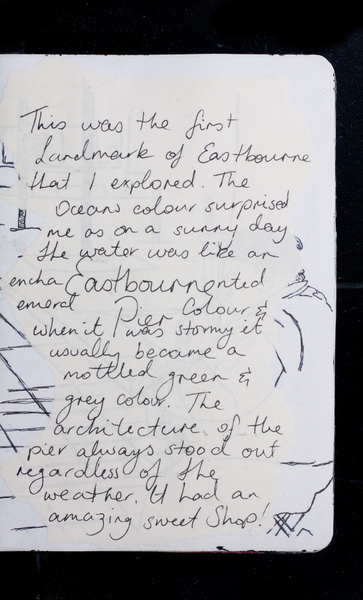 This was the first
Landmark of Eastbourne
that I explored. The
Oceans colour surprised
me as on a sunny day
the water was like an
encha Eastbournented
emeral Pier Colour &
when it was stormy it
usually became a
mottled green &
grey colour. The
architecture of the
pier always stood out
regardless of the
weather. It had an
amazing sweet Shop!